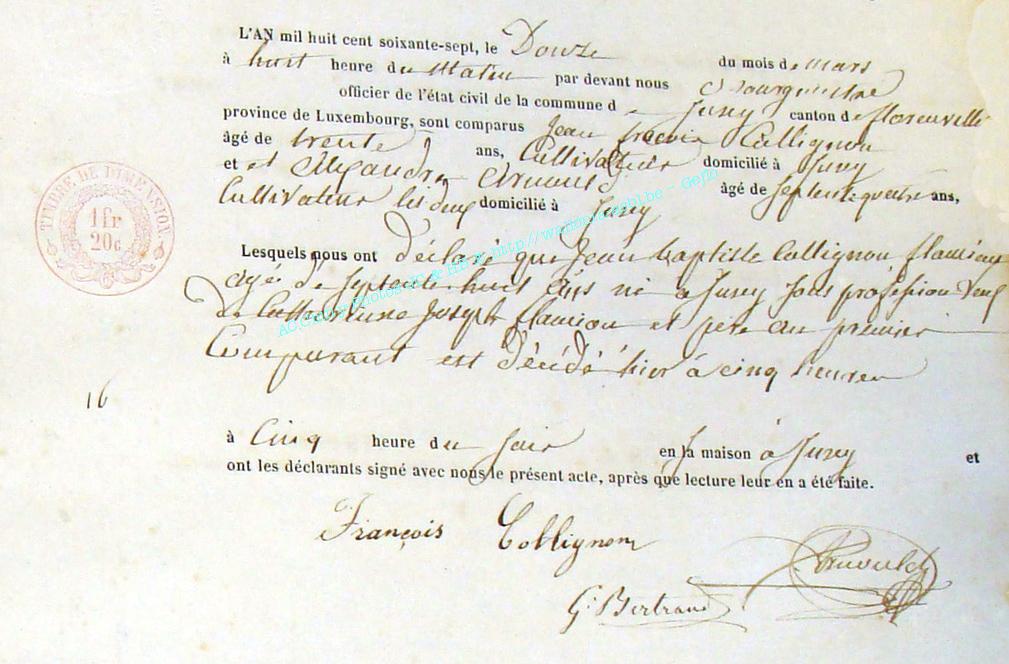 L'AN mil huit cent soixante-sept, le Douze du mois de mars
à huit heure du Matin par devant nous Bourgmestre
officier de l'état civil de la commune de Izel canton de florenville
province de Luxembourg, sont comparus Jean françois Collignon
âgé de trente ans, Cultivateur domicilié à
et et Alexandre Arnould âgé de septente quatre ans,
Cultivateur les deux domicilié à
Lesquels nous ont déclaré que Jean baptiste Collignon
agé de septente huit ans né à sans profession veuf
de Catherinne Joseph et père au premier
Comparant est décédé hier à cinq heures
16
à Cinq heure du soir en sa maison à et
ont les déclarants signé avec nous le présent acte, après que lecture leur en a été faite.
François Collignon
Arnould
G. Bertrand
TIMBRE DE DIMENSION.
1 fr
20 c